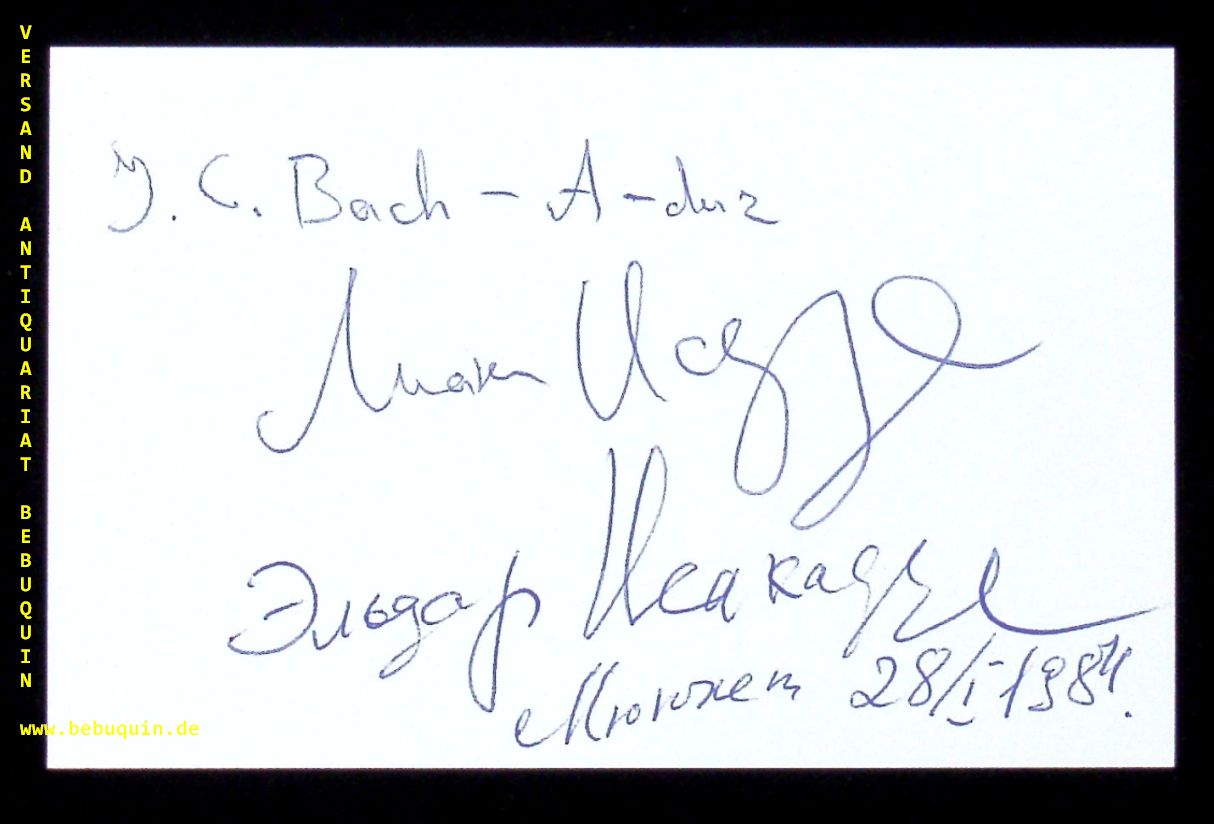 VERSAND ANTIQUARIAT BEBUQUIN
J. C. Bach – A-dur
Лиана Иса
Эльдар Исакадзе
Мюнхен 28/I-1984.
www.bebuquin.de